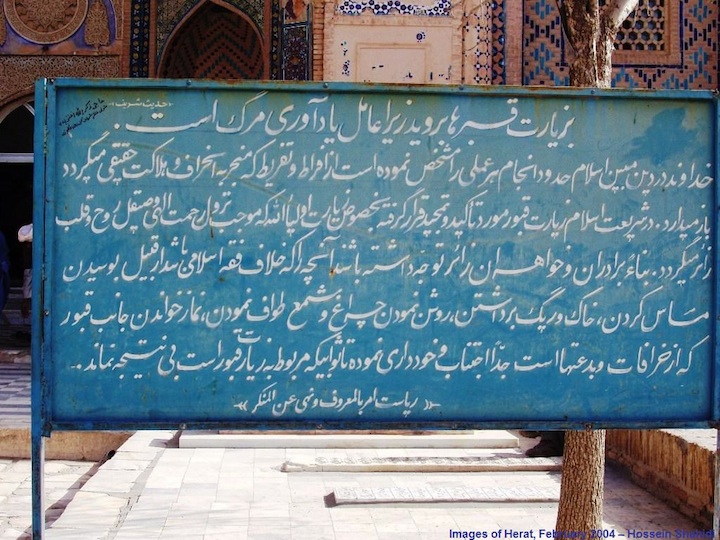 «حدیث شریف»
بزیارت قبرها بروید زیرا عامل یادآوری مرگ است.
خداوند در دین مبین اسلام حدود انجام هر عملی را مشخص نموده است از افراط و تفریط که منجر به انحراف و هلاکت حقیقی میگردد
باز میدارد. در شریعت اسلام زیارت قبور مورد تأکید و تمجید قرار گرفته بخصوص زیارت اولیاء الله که موجب نزول رحمت الهی و صیقل روح و قلب
زائر میگردد. بناءً برادران و خواهران زائر توجه داشته باشند آنچه را که خلاف فقه اسلامی باشد از قبیل بوسیدن
مساس کردن، خاک و ریگ برداشتن، روشن نمودن چراغ و شمع طواف نمودن، نماز خواندن جانب قبور
که از خرافات و بدعتها است جداً اجتناب و خودداری نموده تا ثوابیکه مربوط به زیارت قبور است بی نتیجه نماند.
«ریاست امر بالمعروف و نهی عن المنکر»
Images of Herat, February 2004 – Hossein